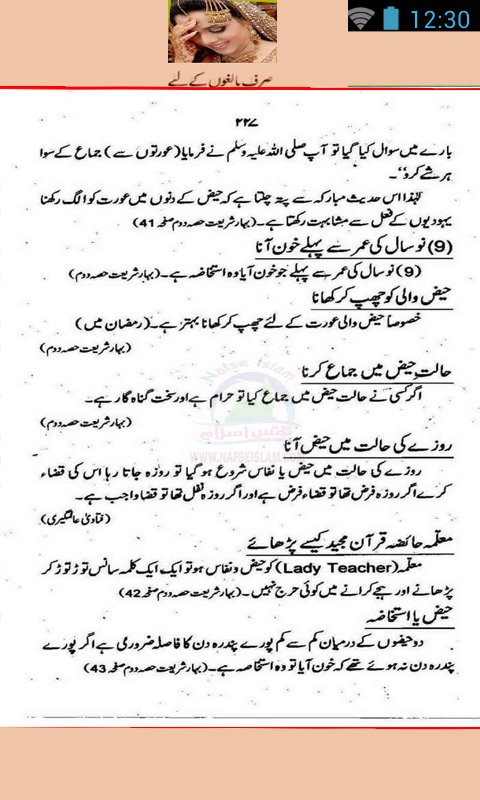 12:30
صرف بالغوں کے لیے
۲۲۷
بارے میں سوال کیا گیا تو آپ صلی اللہ علیہ وسلم نے فرمایا (عورتوں سے) جماع کے سوا
ہر شے کرو"۔
لہٰذا اس حدیث مبارکہ سے پتہ چلتا ہے کہ حیض کے دنوں میں عورت کو الگ رکھنا
یہودیوں کے فعل سے مشابہت رکھتا ہے۔ (بہار شریعت حصہ دوم صفحہ 41)
(9) نو سال کی عمر سے پہلے خون آنا
(9) نو سال کی عمر سے پہلے جو خون آیا وہ استحاضہ ہے۔ (بہار شریعت حصہ دوم)
حیض والی کو چھپ کر کھانا
خصوصاً حیض والی عورت کے لئے چھپ کر کھانا بہتر ہے۔ (رمضان میں)
(بہار شریعت حصہ دوم)
حالت حیض میں جماع کرنا
اگر کسی نے حالت حیض میں جماع کیا تو حرام ہے اور سخت گناہ گار ہے۔
(بہار شریعت حصہ دوم)
Nafse Islam
نفس اسلام
WWW.NAFSEISLAM.COM
روزے کی حالت میں حیض آنا
روزے کی حالت میں حیض یا نفاس شروع ہو گیا تو روزہ جاتا رہا اس کی قضاء
کرے اگر روزہ فرض تھا تو قضاء فرض ہے اور اگر روزہ نفل تھا تو قضا واجب ہے۔
(فتاویٰ عالمگیری)
معلمہ حائضہ قرآن مجید کیسے پڑھائے
معلمہ (Lady Teacher) کو حیض و نفاس ہو تو ایک ایک کلمہ سانس توڑ توڑ کر
پڑھانے اور ہجے کرانے میں کوئی حرج نہیں۔ (بہار شریعت حصہ دوم صفحہ 42)
حیض یا استحاضہ
دو حیضوں کے درمیان کم سے کم پورے پندرہ دن کا فاصلہ ضروری ہے اگر پورے
پندرہ دن نہ ہوئے تھے کہ خون آیا تو وہ استحاضہ ہے۔ (بہار شریعت حصہ دوم صفحہ 43)